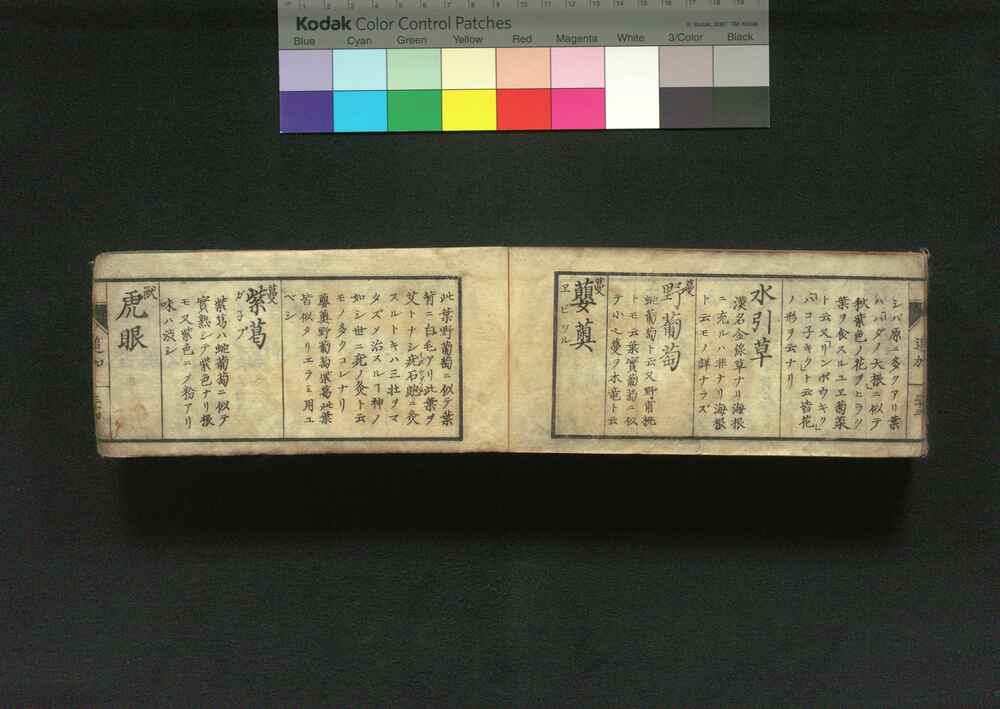 Kodak Color Control Patches
© Kodak, 2007 TM: Kodak
Blue Cyan Green Yellow Red Magenta White 3/Color Black
追加
シバ原ニ多クアリ葉
ハハダノ大根ニ似テ
秋紫色ノ花ヲヒラク
葉ヲ食スルユヱ菊菜
ト云又リンボウギク
ハコ子ギクト云皆花
ノ形ヲ云ナリ
水引草
漢名金線草ナリ海根
ニ充ルハ非ナリ海根
ト云モノ詳ナラズ
蔓
野葡萄
蛇葡萄ト云又野甫桃
トモ云葉實葡萄ニ似
テ小也蔓ヲ木竜ト云
蔓
蘡薁
ヱビヅル
此葉野葡萄ニ似テ葉
背ニ白毛アリ此葉ヲ
艾トナシ疣石皰ニ灸
スルトキハ三壮ヲマ
タズノ治スルヿ神ノ
如シ世ニ疣ノ灸ト云
モノ多クコレナリ
蘡薁野葡萄紫葛此葉
皆似タリエラミ用ユ
ベシ
蔓
紫葛
紫葛ハ蛇葡萄ニ似テ
實熟シテ紫色ナリ根
モ又紫色ニノ粉アリ
味ハ渋シ
獣
虎眼
追加